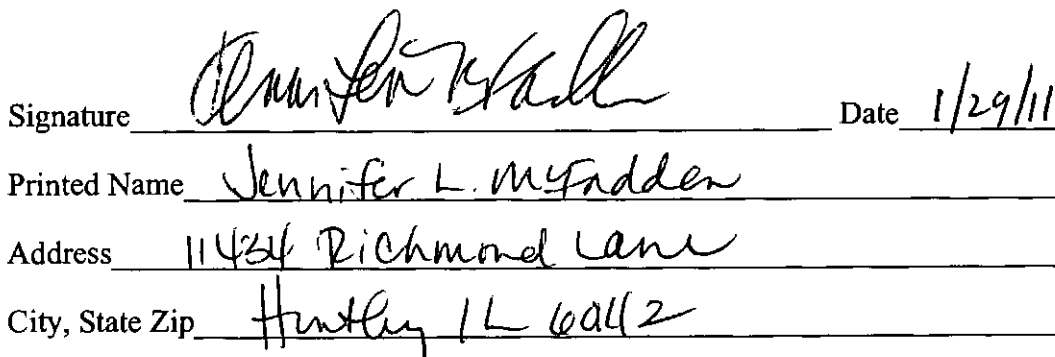 Signature Jennifer McFadden Date 1/29/11
Printed Name Jennifer L. McFadden
Address 11434 Richmond Lane
City, State Zip Huntley IL 60142